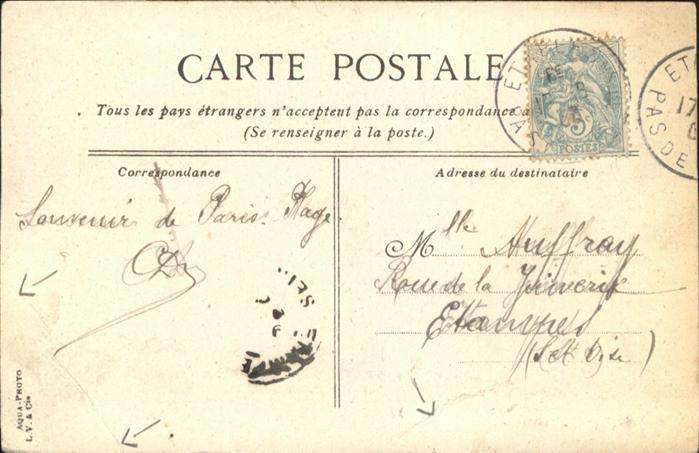 CARTE POSTALE
Tous les pays étrangers n'acceptent pas la correspondance a
(Se renseigner à la poste.)
POSTES
5
ET
PAS
ET
17
PAS DE
Correspondance
Souvenir de Paris. Plage.
Adresse du destinataire
Mlle Auffray
Rue de la Juiverie
Etampes
(Set Oise)
SEI
AQUA-PHOTO
L. V. & Cie